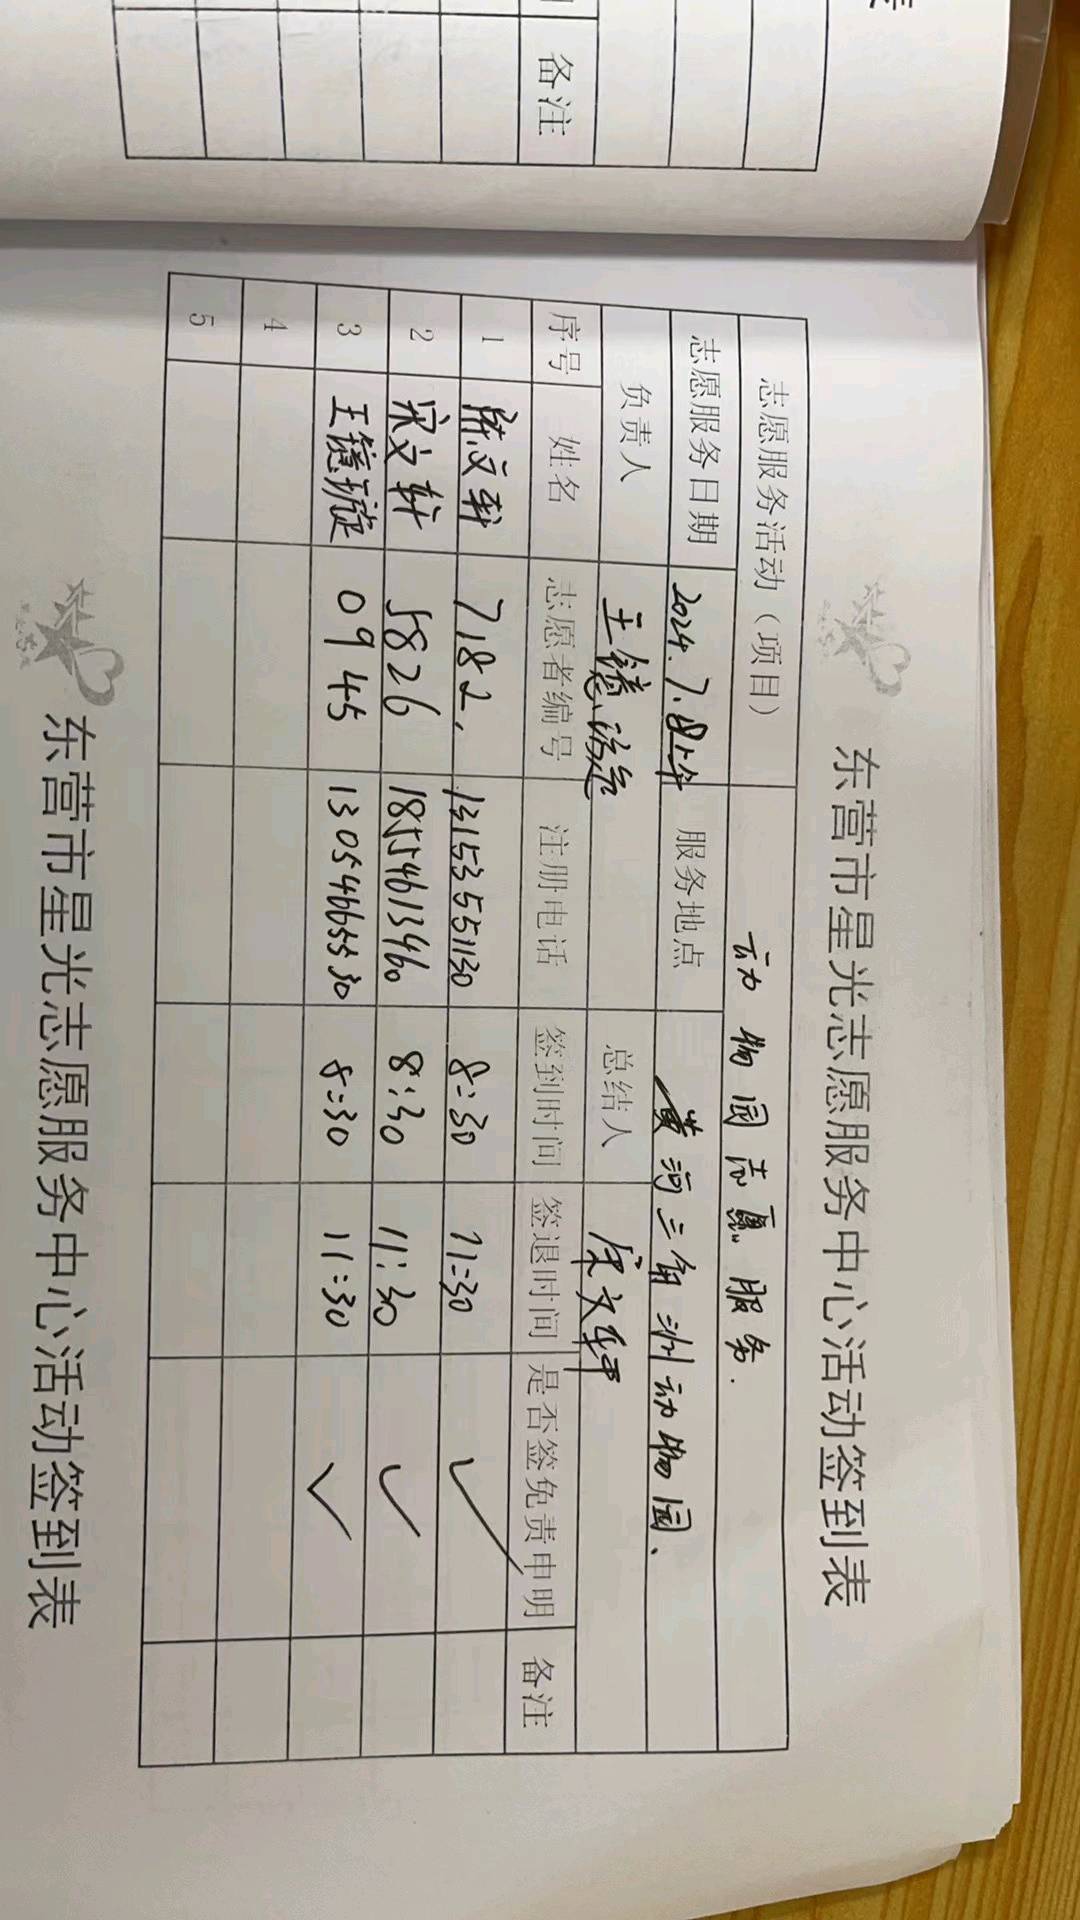 备注
东营市星光志愿服务中心活动签到表
志愿服务活动（项目） 动物园志愿服务.
志愿服务日期 2024.7.8上午 服务地点 黄河三角洲动物园、
负责人 总结人
序号 姓名 志愿者编号 注册电话 签到时间 签退时间 是否签免责申明 备注
1 陈文轩 7182. 13153551130 8:30 11:30 ✓
2 宋文轩 5826 18554613460 8:30 11:30 ✓
3 王镱璇 0945 13054665530 8:30 11:30 ✓
4
5
东营市星光志愿服务中心活动签到表